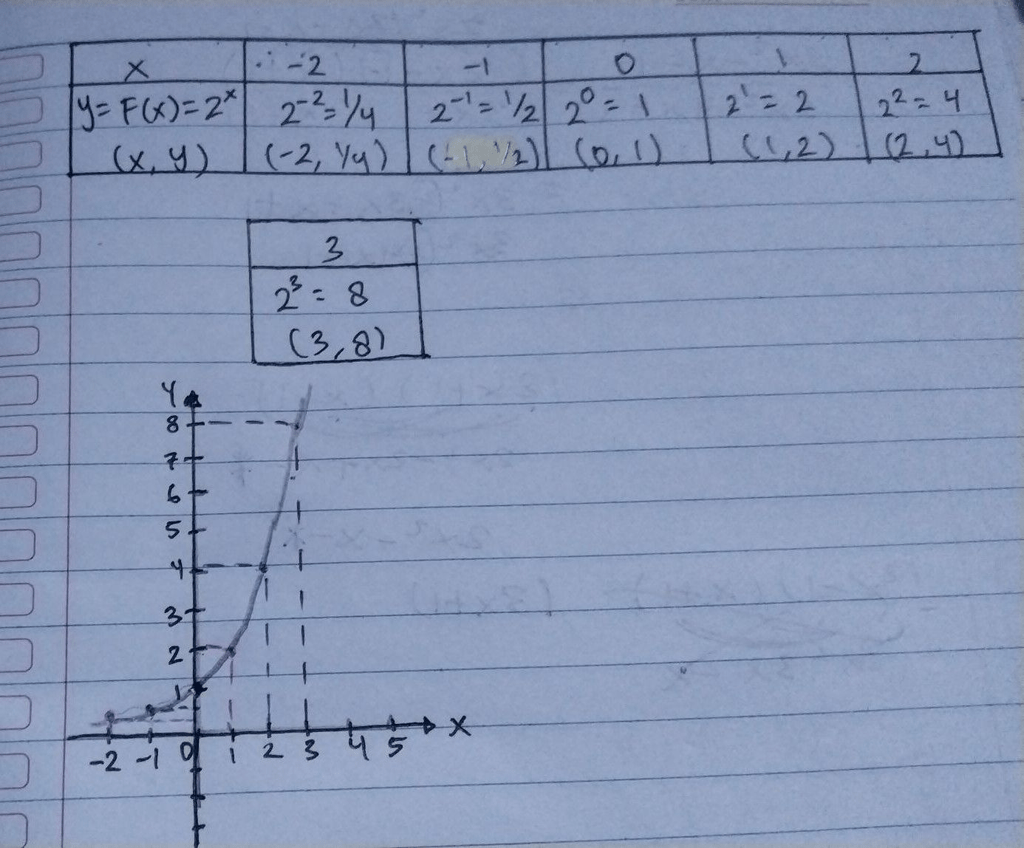 x -2 -1 0 1 2
y= F(x)=2ˣ 2⁻²=1/4 2⁻¹=1/2 2⁰=1 2¹=2 2²=4
(x, y) (-2, 1/4) (-1, 1/2) (0, 1) (1,2) (2,4)
3
2³ = 8
(3,8)
Y
8
7
6
5
4
3
2
1
-2 -1 0 1 2 3 4 5 X